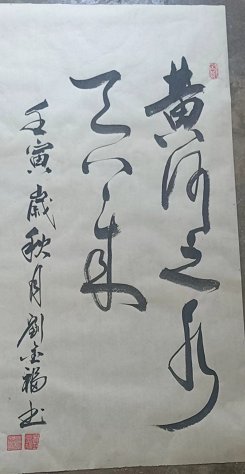 黄河之水
天上来
壬寅歲秋月劉金福书